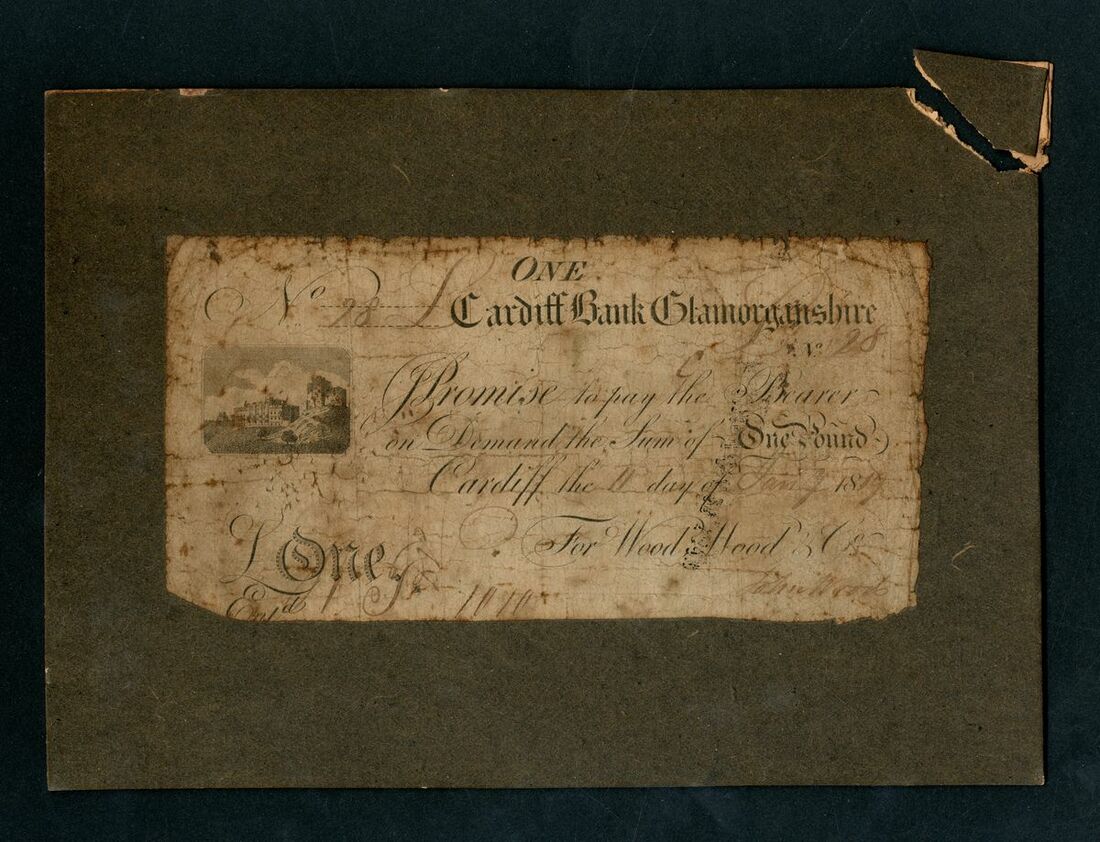 ONE
No 28 Cardiff Bank Glamorganshire
No 28
I Promise to pay the Bearer
on Demand the Sum of One Pound
Cardiff the 11 day of Jany 1819
For Wood, Wood & Co
£ One
John Wood
Entd